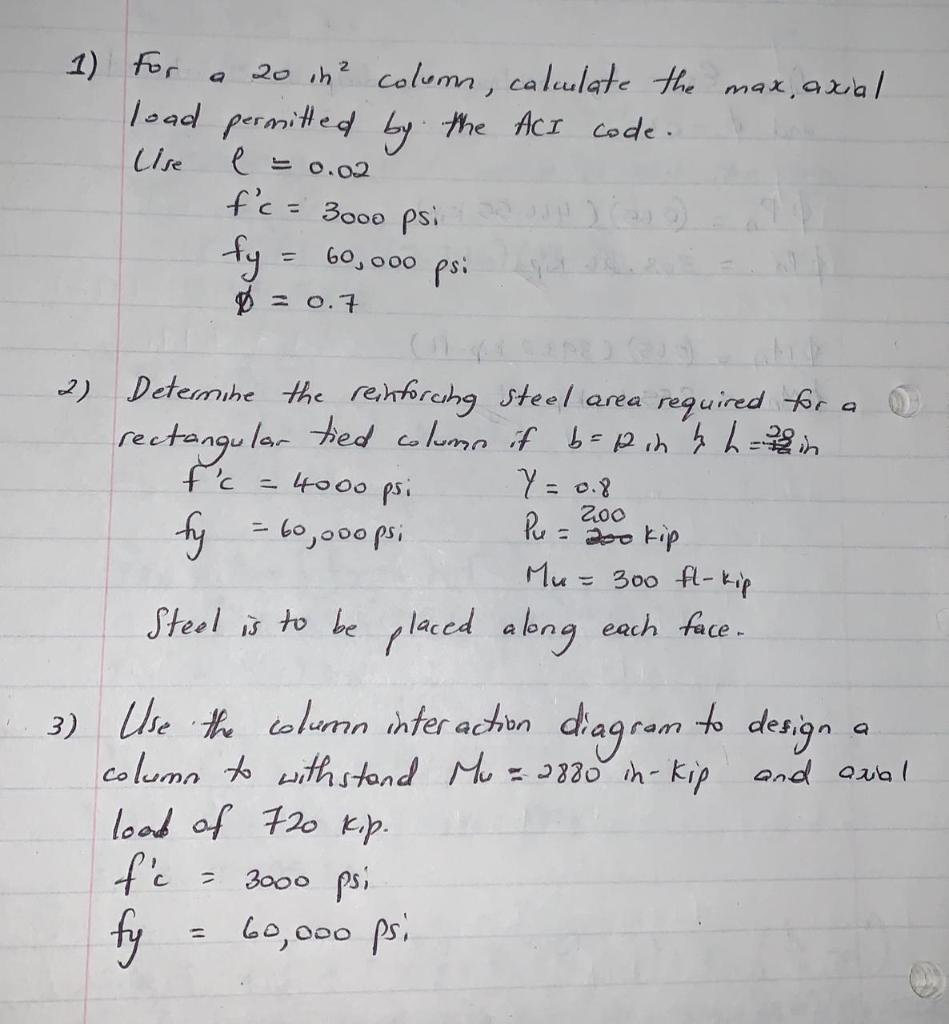 1) For a 20 in² column, calculate the max. axial
load permitted by the ACI code.
Use ρ = 0.02
f'c = 3000 psi
fy = 60,000 psi
Ø = 0.7
2) Determine the reinforcing steel area required for a
rectangular tied column if b = 12 in & h = 20 in
f'c = 4000 psi γ = 0.8
fy = 60,000 psi Pu = 200 kip
Mu = 300 ft-kip
Steel is to be placed along each face.
3) Use the column interaction diagram to design a
column to withstand Mu = 2880 in-kip and axial
load of 720 kip.
f'c = 3000 psi
fy = 60,000 psi